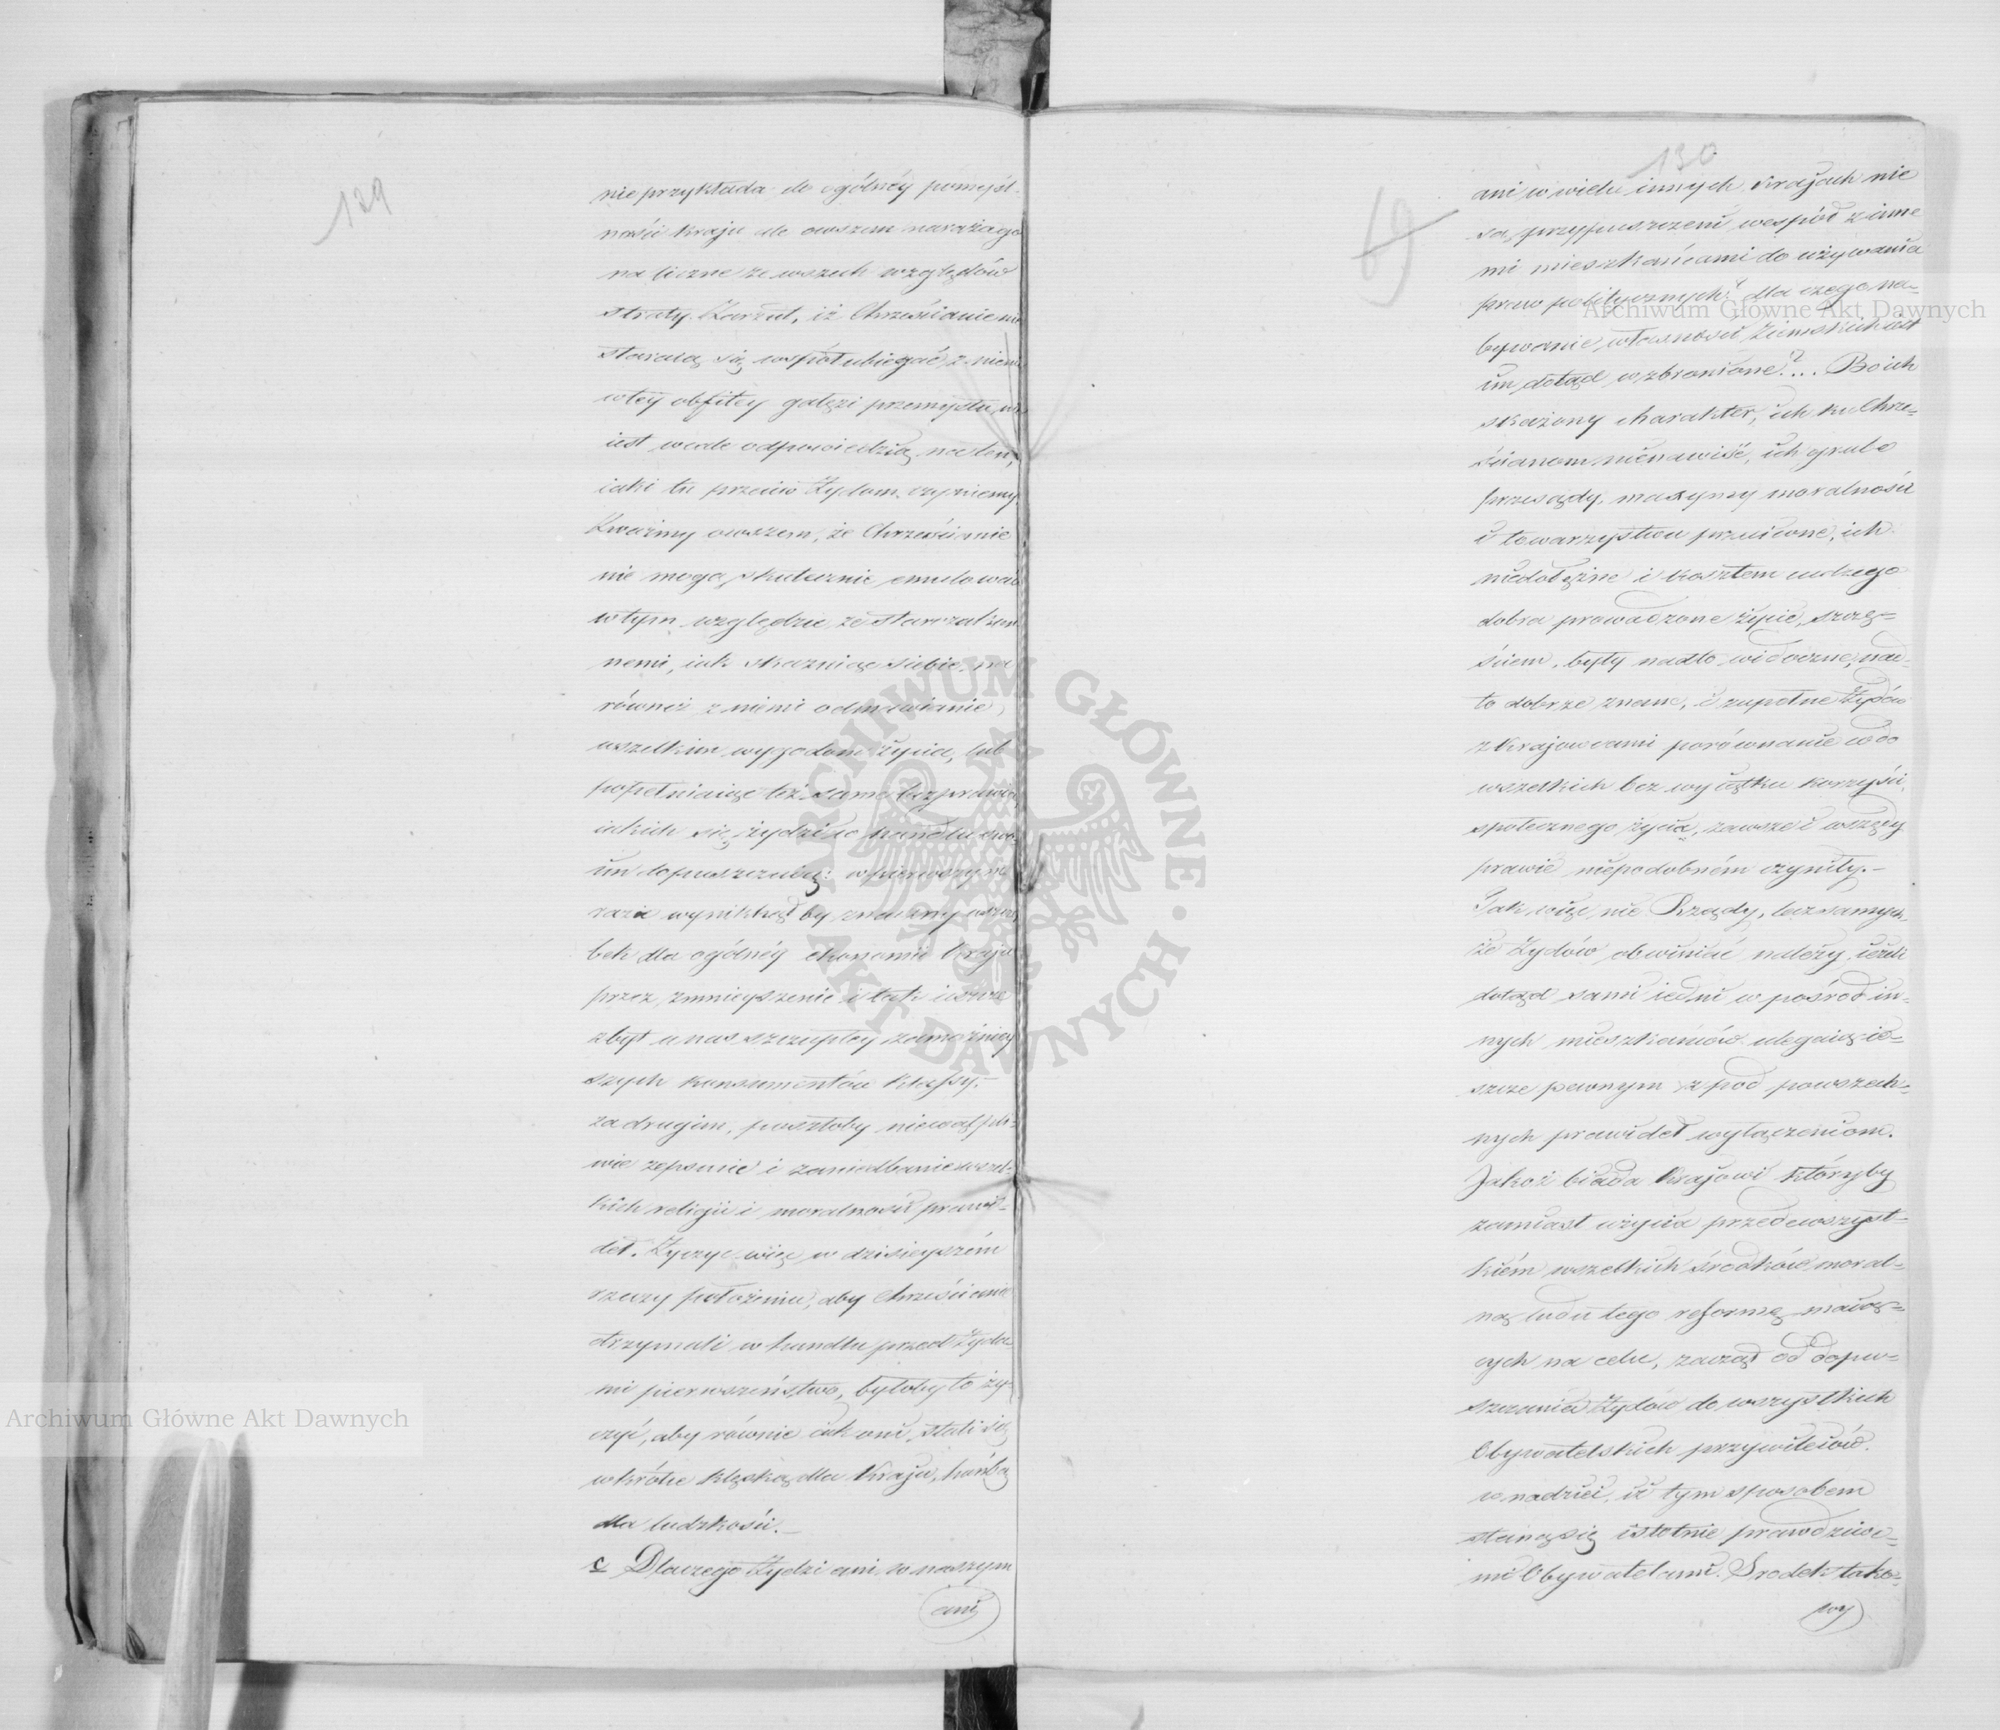 129
nie przykłada do ogólnéy pomyśl-
ności Kraju ale owszem naraża go
na liczne ze wszech względów
straty. Zarzut, iż Chrześcianie nie
starają się współubiegać z niemi
w téy obfitey gałęzi przemysłu, nie
iest wcale odpowiedzią na ten,
iaki tu przeciw Żydom czyniemy.
Zważmy owszem, że Chrześcianie
nie mogą skutecznie emulować
w tym względzie ze starozakon-
nemi, iak skazuiąc siebie na
równéi z niemi odmawianie
wszelkim wygodom życia, lub
popełniaiąc też same bezprawia,
iakich się żydzi w handlu swo-
im dopuszczaią: w pierwszym
razie wyniknąłby znaczny uszczer-
bek dla ogólnéy ekonomii Kraju
przez zmnieyszenie i tak ieszcze
zbyt u nas szczupłey zamożniey-
szych konsumentów klassy.-
za drugim, poszłoby niewątpli-
wie zepsucie i zaniedbanie wszel-
kich religii i moralności prawi-
deł. Życzyć więc w dzisieyszém
rzeczy położeniu, aby Chrześcianie
otrzymali w handlu przed Żyda-
mi pierwszeństwo, byłoby to ży-
czyć, aby równie iak oni, stali się
wkrótce klęską dla Kraju, hańbą
dla ludzkości.-
c Dlaczego Żydzi ani w naszym
ani
130
69
ani w wielu innych Krajach nie
są przypuszczeni wespół z inne-
mi mieszkańcami do używania
praw politycznych? dla czego na-
bywanie własności Ziemskich iest
im dotąd wzbronione?... Bo ich
skażony charakter, ich ku Chrze-
ścianom nienawiść, ich grube
przesądy, maxymy moralności
i towarzystwu przeciwne, ich
niedołężne i kosztem cudzego
dobra prowadzone życie, szczę-
ściem, były nadto widoczne, nad-
to dobrze znane, i zupełne Żydów
z Krajowcami porównanie co do
wszelkich bez wyiątku korzyści
społecznego życia, zawsze i wszędy
prawie niepodobném czyniły.-
Tak więc nie Rządy, lecz samych-
że Żydów obwiniać należy, ieżeli
dotąd sami iedni w pośród in-
nych mieszkańców ulegaią ie-
szcze pewnym z pod powszech-
nych prawideł wyłączeniom.
Jakoż biada Krajowi któryby
zamiast użycia przedewszyst-
kiém wszelkich środków moral-
ną ludu tego reformę maią-
cych na celu, zaczął od dopu-
szczenia Żydów do wszystkich
Obywatelskich przywileiów.
w nadziei, iż tym sposobem
staną się istotnie prawdziwe-
mi Obywatelami. Srodek tako-
wy
Archiwum Główne Akt Dawnych
Archiwum Główne Akt Dawnych
ARCHIWUM GŁÓWNE AKT DAWNYCH